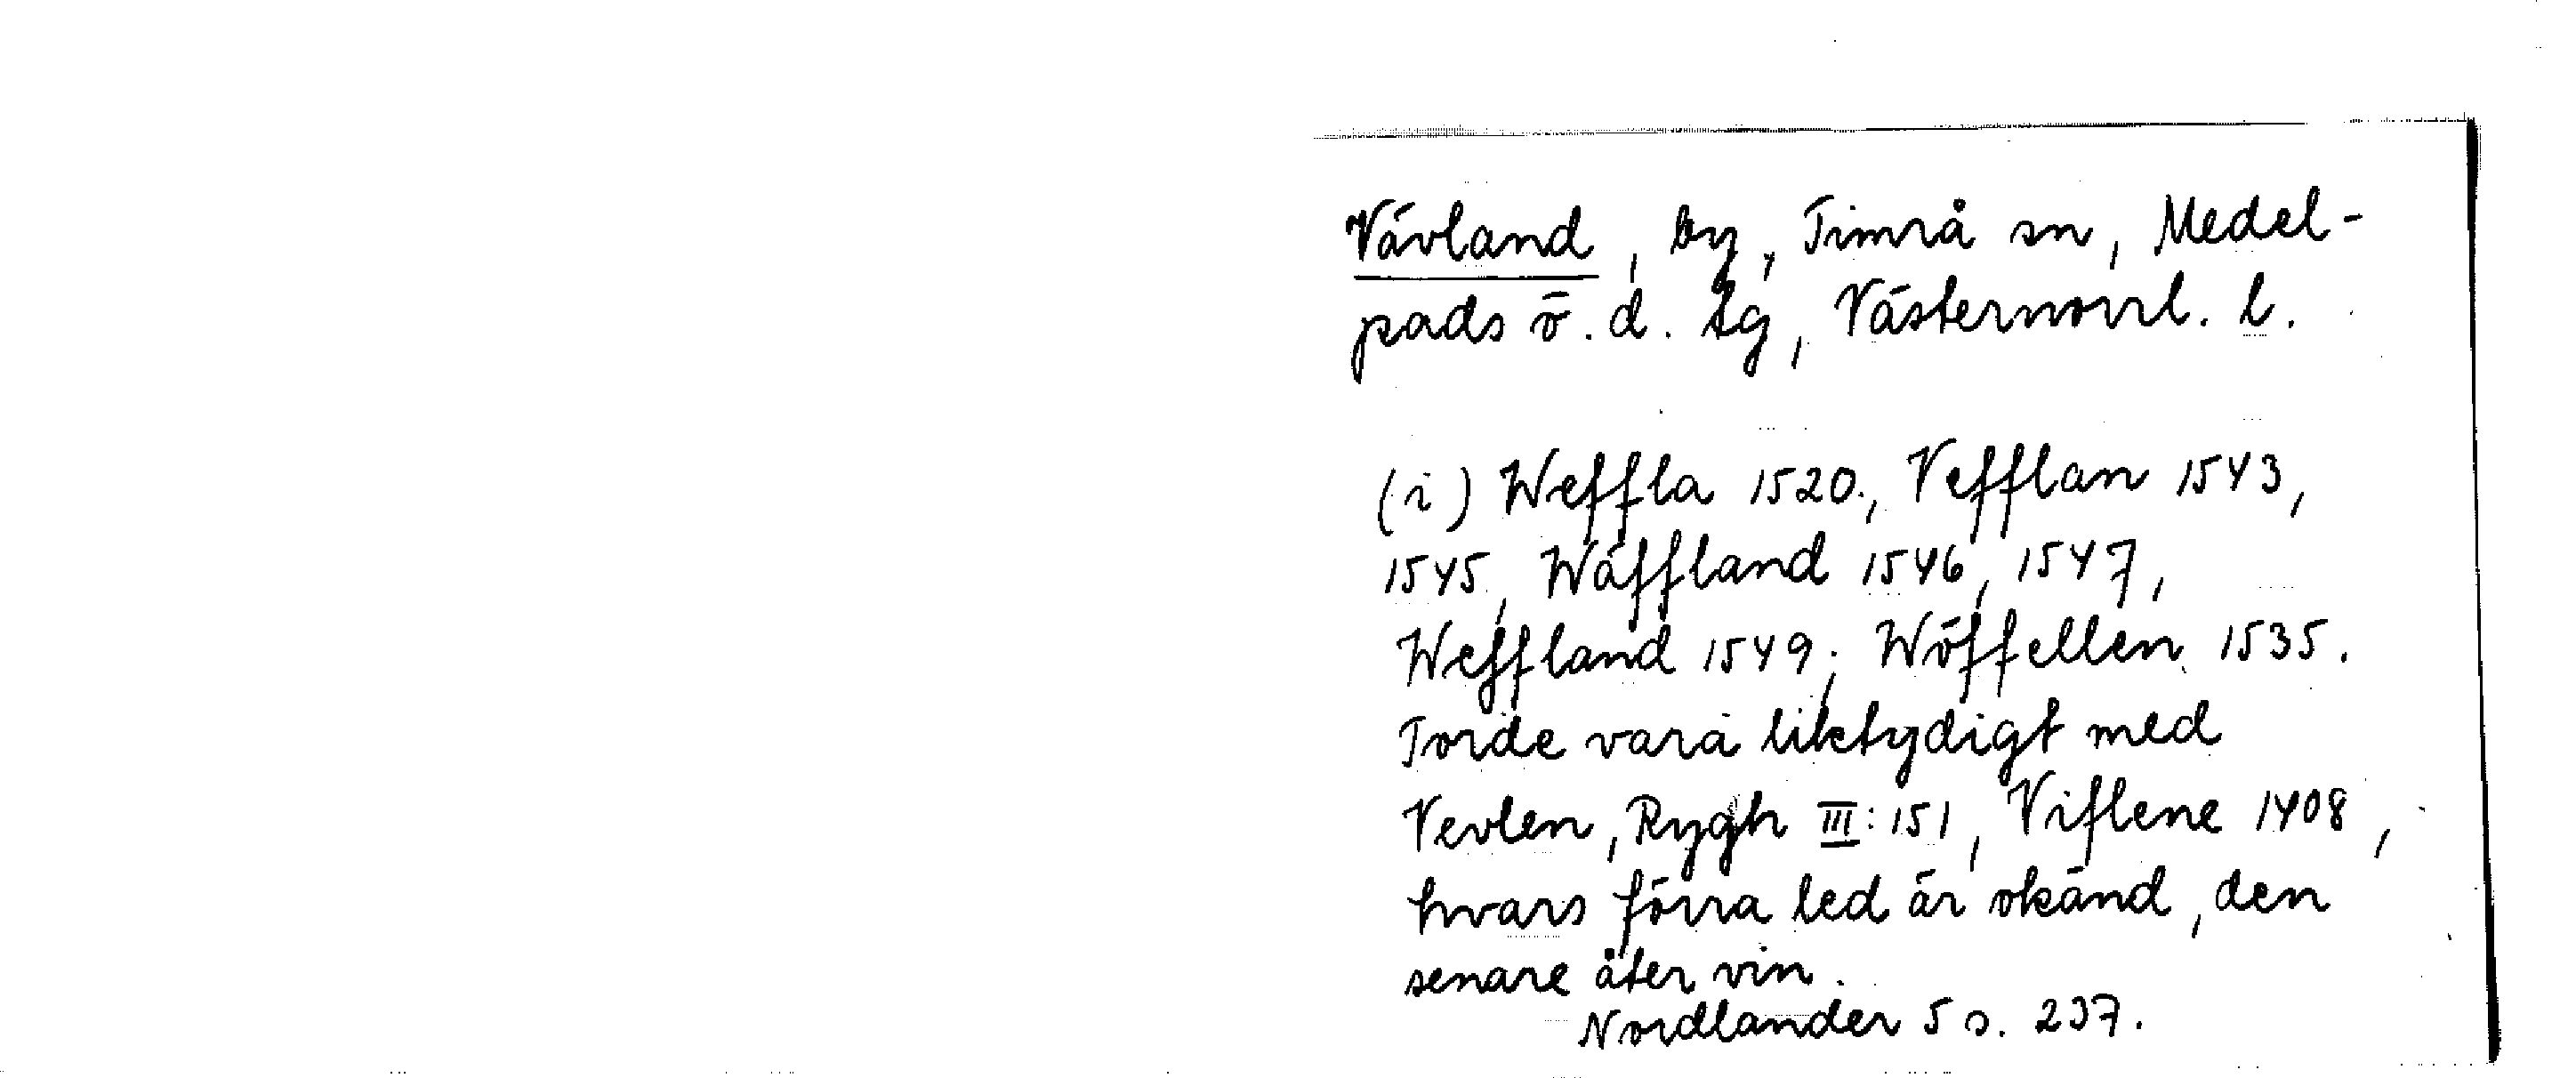 Vävland, by, Timrå sn, Medel-
pads ö. d. tg, Västernorrl. l.
(i) Weffla 1520, Vefflan 1543,
1545, Wäffland 1546, 1547,
Weffland 1549; Wöffellen 1535.
Torde vara liktydigt med
Vevlen, Rygh III:151, Viflene 1408,
hvars förra led är okänd, den
senare åter vin.
Nordlander 5 s. 237.